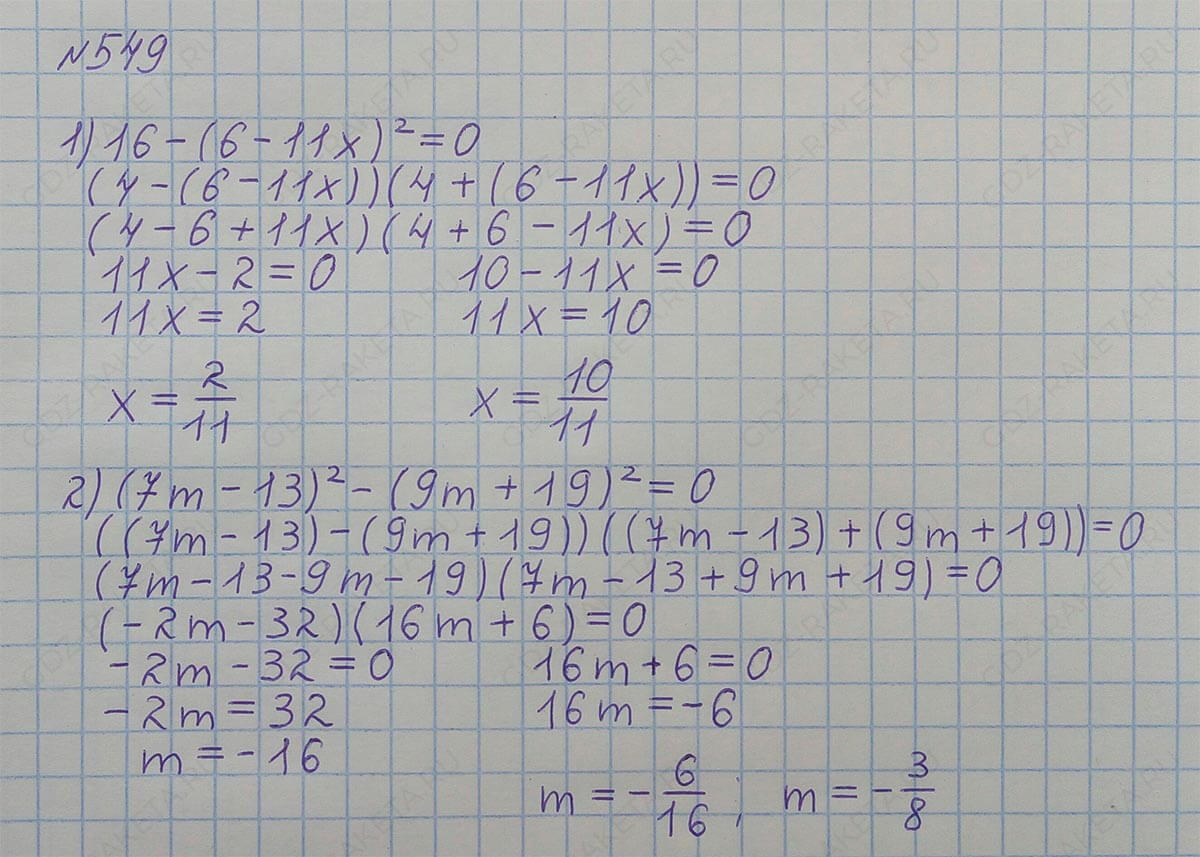 №549
1) 16-(6-11x)²=0
(4-(6-11x))(4+(6-11x))=0
(4-6+11x)(4+6-11x)=0
11x-2=0 10-11x=0
11x=2 11x=10
x=2/11 x=10/11
2) (7m-13)²-(9m+19)²=0
((7m-13)-(9m+19))((7m-13)+(9m+19))=0
(7m-13-9m-19)(7m-13+9m+19)=0
(-2m-32)(16m+6)=0
-2m-32=0 16m+6=0
-2m=32 16m=-6
m=-16
m=-6/16; m=-3/8
GDZ-RAKETA.RU